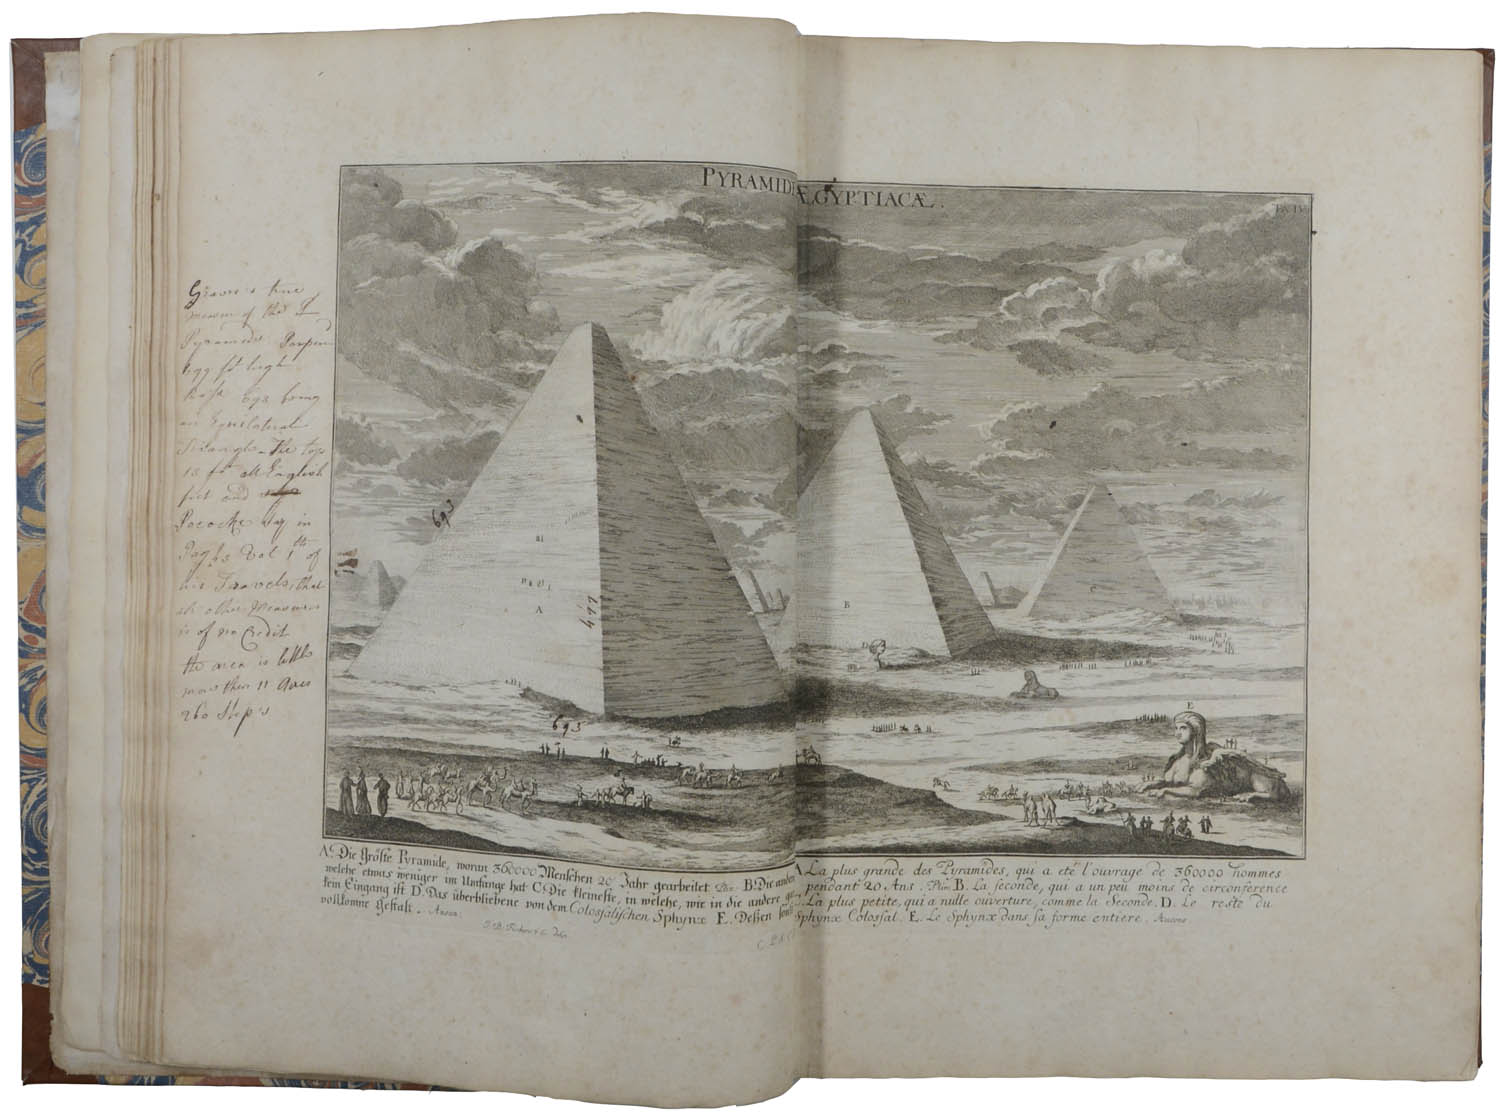 PYRAMID ÆGYPTIACÆ.
Greave's true
mesure of the
Pyramids Perpen
499 ft high
base 693 being
an Equilateral
Triangle - The top
13 ft all English
feet and
Pococke say in
Pag 43 Vol 1th of
his Travels, that
all other Measures
is of no Credit
the area is little
more then 11 Acres
260 Step's
693
499
693
A
B
C
D
E
A. Die Gröste Pyramide, woran 360000 Menschen 20 Jahr gearbeitet. Plin. B. Die andere
welche etwas weniger im Umfange hat C. Die kleineste, in welche, wie in die andere
kein Eingang ist D. Das überbliebene von dem Colossalischen Sphynx E. Dessen
vollkomne Gestalt. Autor.
A La plus grande des Pyramides, qui a eté l'ouvrage de 360000 hommes
pendant 20 Ans. Plin. B. La seconde, qui a un peu moins de circonférence
C. La plus petite, qui a nulle ouverture, comme la Seconde. D. Le reste du
Sphynx Colossal. E. Le Sphynx dans sa forme entiere. Autores.